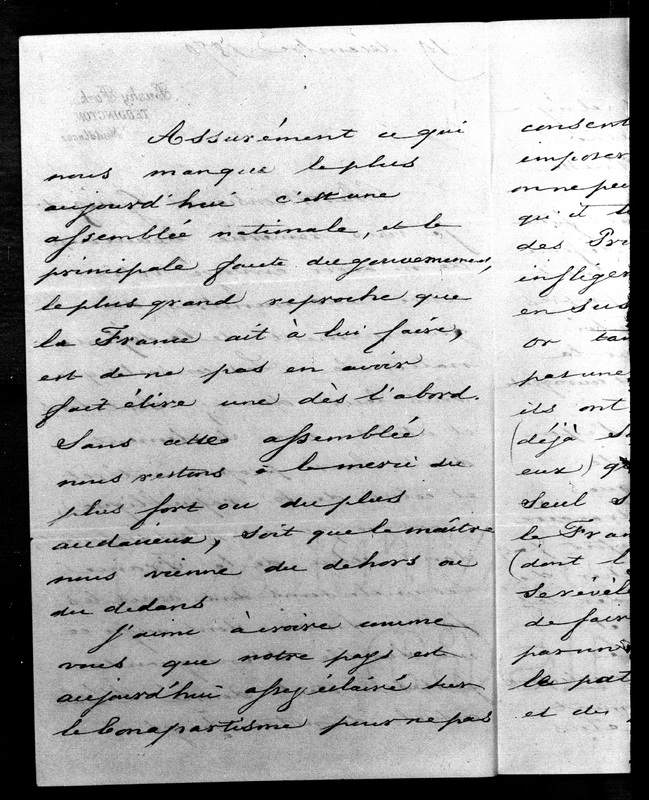 Assurément ce qui
nous manque le plus
aujourd'hui c'est une
assemblée nationale, et la
principale faute du gouvernement,
le plus grand reproche que
la France ait à lui faire,
est de ne pas en avoir
fait élire une dès l'abord.
Sans cette assemblée
nous restons à la merci du
plus fort ou du plus
audacieux, soit que le maître
nous vienne du dehors ou
du dedans
J'aime à croire comme
vous que notre pays est
aujourd'hui assez éclairé sur
le bonapartisme pour ne pas
consent
imposer
on ne peu
qu'il
des Pri
infliger
en sus
or tan
pas une
ils ont
(déjà
eux)
Seul
la Fran
(dont
Se révèl
de fair
par un
la pat
et de